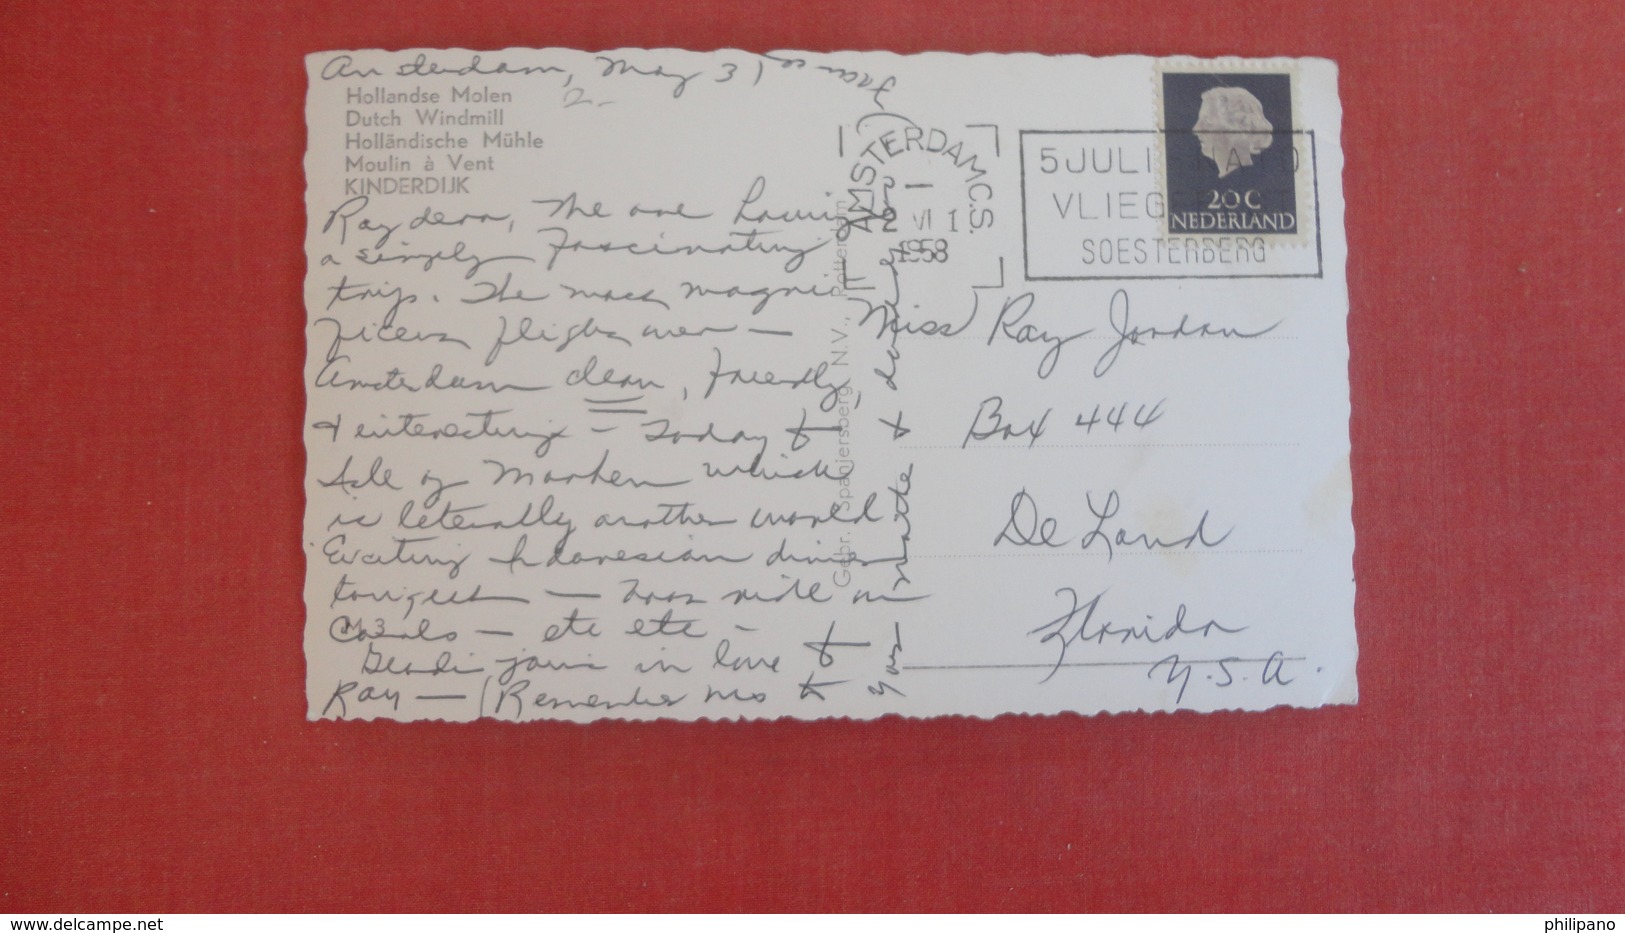 Amsterdam, May 31
2-
Hollandse Molen
Dutch Windmill
Holländische Mühle
Moulin à Vent
KINDERDIJK
Ray dear, The are having
a simply fascinating
trip. The most magni
ficent flight over —
Amsterdam clean, friendly
& interesting — Today to
Isle of Marken which
is literally another world
Exciting Indonesian dinner
tonight — boat ride on
Canals — etc etc —
M 3
joins in love to
Ray — (Remember me to
your & 
Gebr. Spanjersberg N.V., Rotterdam
AMSTERDAM C.S.
2 VI 1
1958
5 JULI
VLIEG
SOESTERBERG
20 C
NEDERLAND
Miss Ray Jordan
Box 444
De Land
Florida
U.S.A.
delcampe.net
philipano